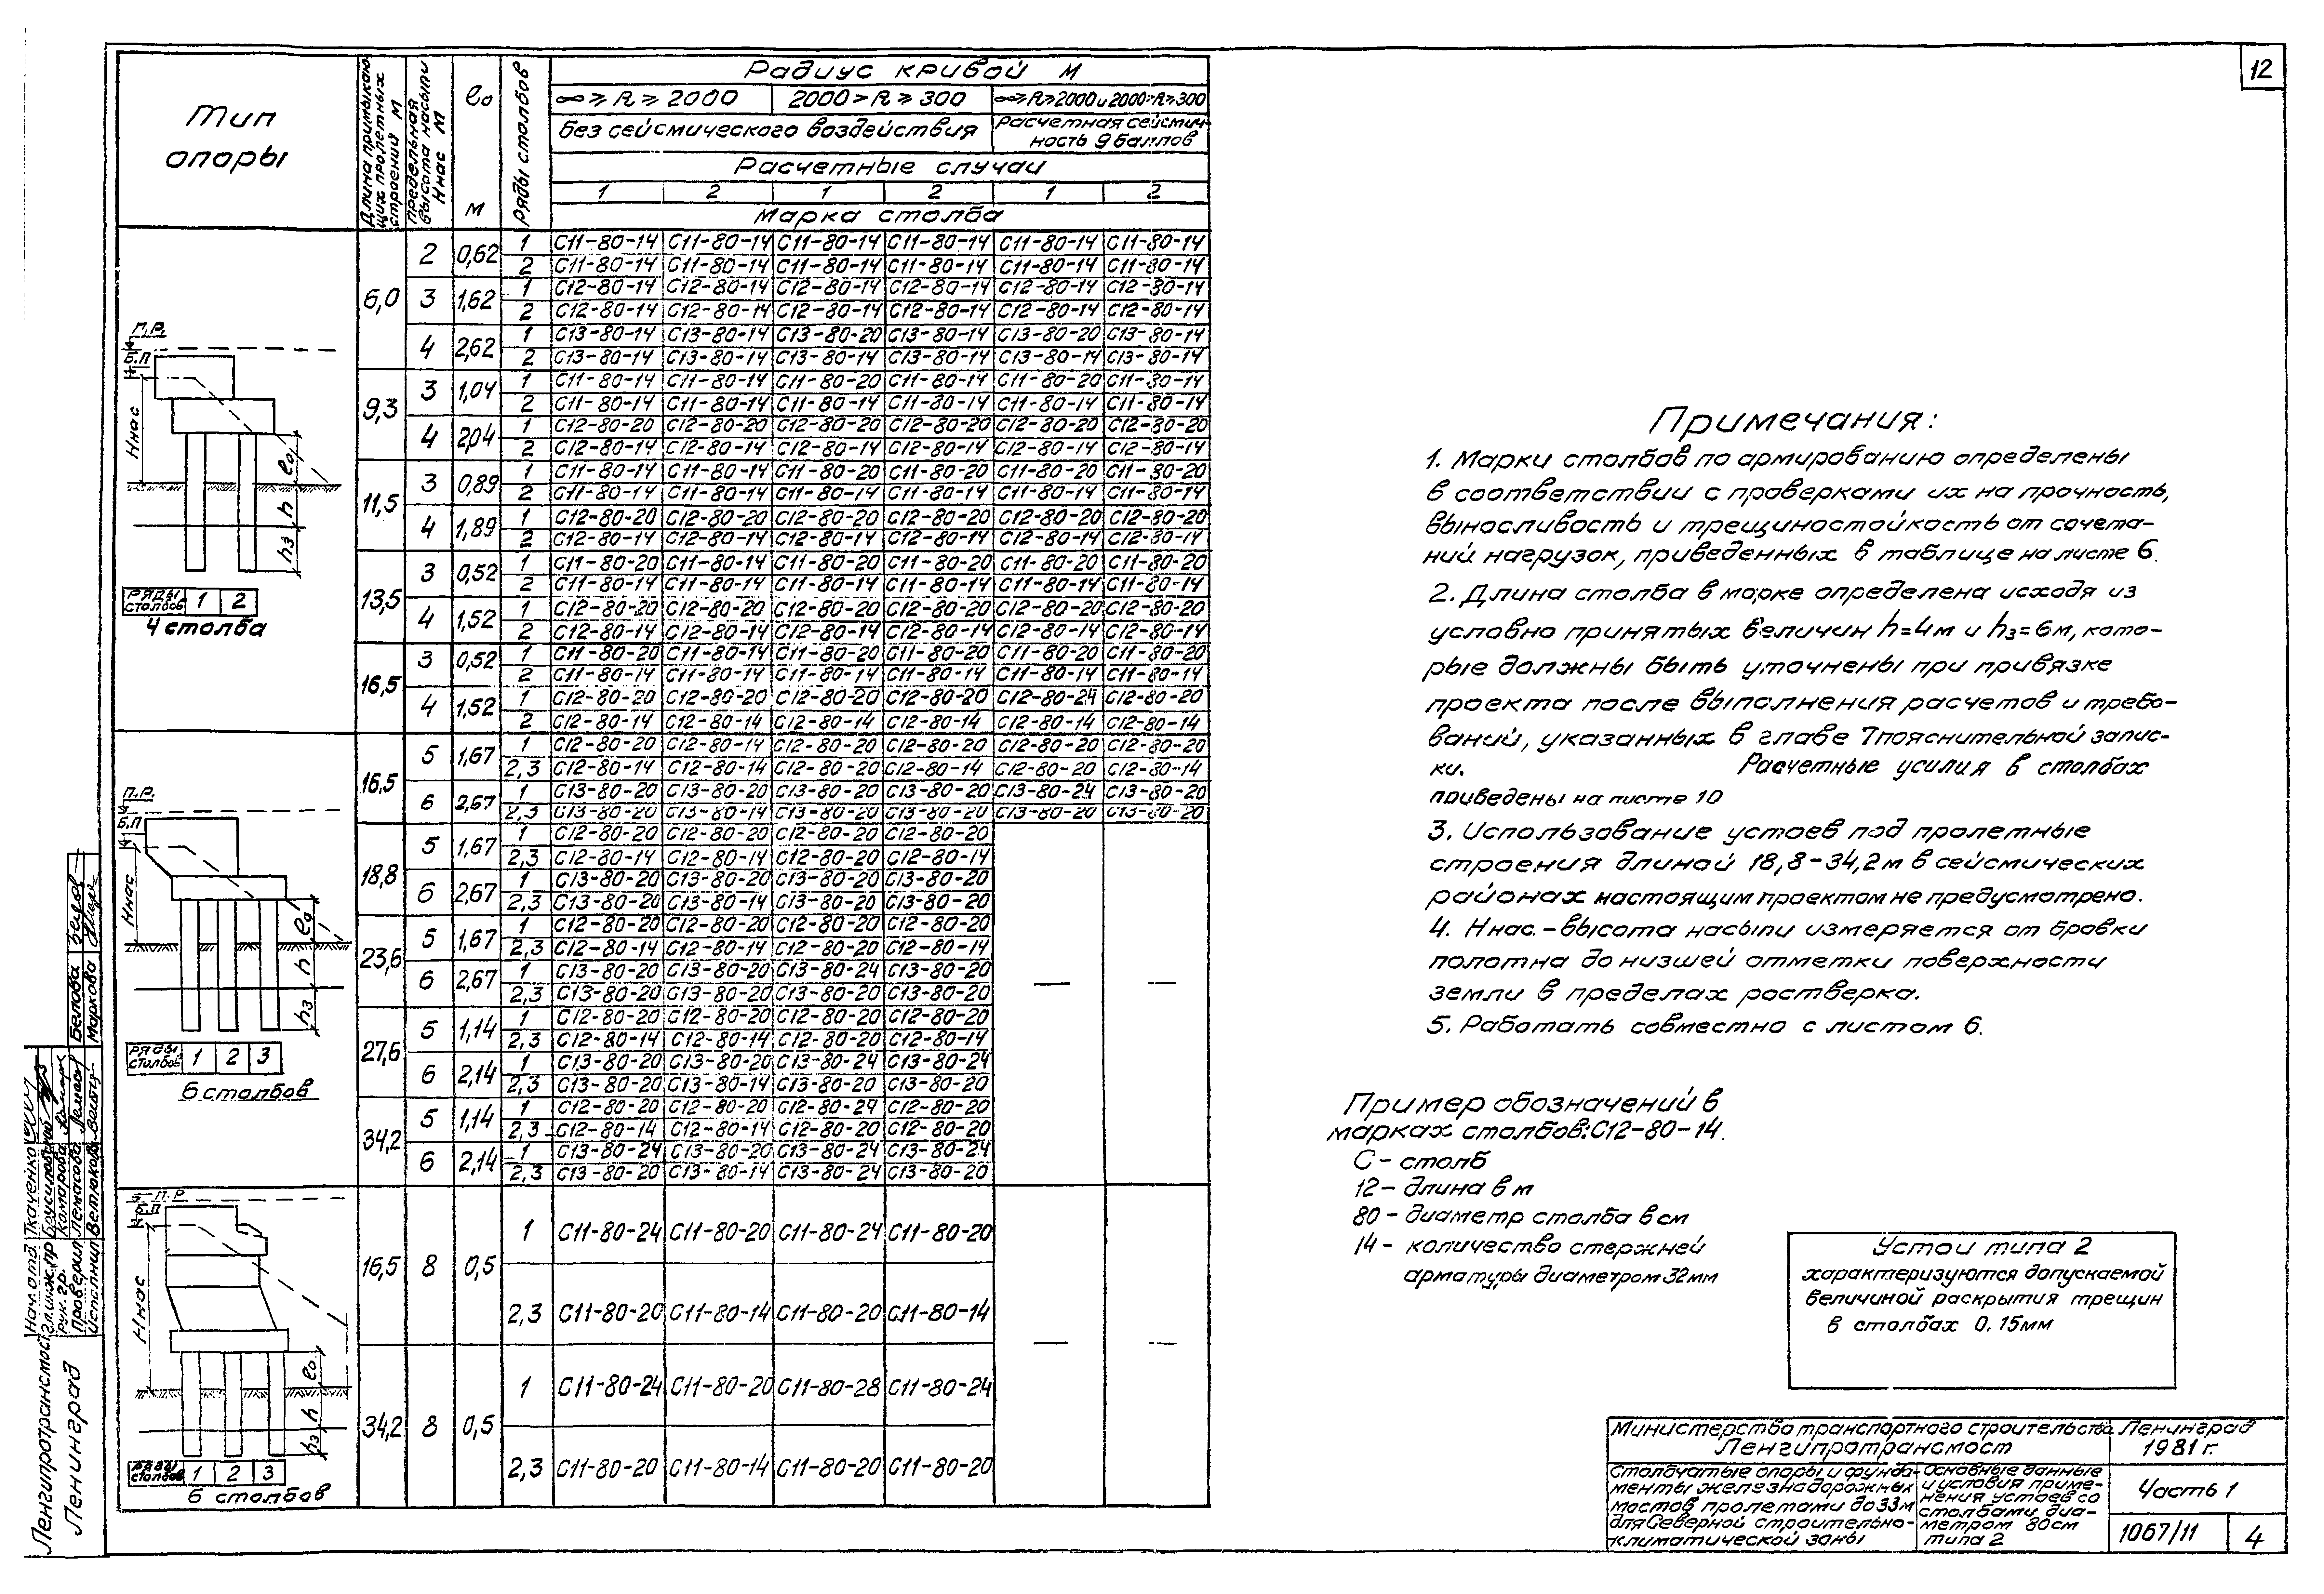 12
Тип
опоры
Длина примыкаю-
щих пролетных
строений м
Предельная
высота насыпи
Ннас м
ℓ₀
м
Ряды столбов
Радиус кривой м
∞ ⩾ R ⩾ 2000 2000 > R ⩾ 300 ∞⩾R⩾2000 и 2000>R⩾300
без сейсмического воздействия Расчетная сейсмич-
ность 9 баллов
Расчетные случаи
1 2 1 2 1 2
Марка столба
6,0 2 0,62 1 С11-80-14 С11-80-14 С11-80-14 С11-80-14 С11-80-14 С11-80-14
2 С11-80-14 С11-80-14 С11-80-14 С11-80-14 С11-80-14 С11-80-14
3 1,62 1 С12-80-14 С12-80-14 С12-80-14 С12-80-14 С12-80-14 С12-80-14
2 С12-80-14 С12-80-14 С12-80-14 С12-80-14 С12-80-14 С12-80-14
4 2,62 1 С13-80-14 С13-80-14 С13-80-20 С13-80-14 С13-80-20 С13-80-14
2 С13-80-14 С13-80-14 С13-80-14 С13-80-14 С13-80-14 С13-80-14
9,3 3 1,04 1 С11-80-14 С11-80-14 С11-80-20 С11-80-14 С11-80-20 С11-80-14
2 С11-80-14 С11-80-14 С11-80-14 С11-80-14 С11-80-14 С11-80-14
4 2,04 1 С12-80-20 С12-80-20 С12-80-20 С12-80-20 С12-80-20 С12-80-20
2 С12-80-14 С12-80-14 С12-80-14 С12-80-14 С12-80-14 С12-80-14
11,5 3 0,89 1 С11-80-14 С11-80-14 С11-80-20 С11-80-20 С11-80-20 С11-80-20
2 С11-80-14 С11-80-14 С11-80-14 С11-80-14 С11-80-14 С11-80-14
4 1,89 1 С12-80-20 С12-80-20 С12-80-20 С12-80-20 С12-80-20 С12-80-20
2 С12-80-14 С12-80-14 С12-80-14 С12-80-14 С12-80-14 С12-80-14
13,5 3 0,52 1 С11-80-20 С11-80-14 С11-80-20 С11-80-20 С11-80-20 С11-80-20
2 С11-80-14 С11-80-14 С11-80-14 С11-80-14 С11-80-14 С11-80-14
4 1,52 1 С12-80-20 С12-80-20 С12-80-20 С12-80-20 С12-80-20 С12-80-20
2 С12-80-14 С12-80-14 С12-80-14 С12-80-14 С12-80-14 С12-80-14
16,5 3 0,52 1 С11-80-20 С11-80-14 С11-80-20 С11-80-20 С11-80-20 С11-80-20
2 С11-80-14 С11-80-14 С11-80-14 С11-80-14 С11-80-14 С11-80-14
4 1,52 1 С12-80-20 С12-80-20 С12-80-20 С12-80-20 С12-80-24 С12-80-20
2 С12-80-14 С12-80-14 С12-80-14 С12-80-14 С12-80-14 С12-80-14
16,5 5 1,67 1 С12-80-20 С12-80-14 С12-80-20 С12-80-20 С12-80-20 С12-80-20
2,3 С12-80-14 С12-80-14 С12-80-20 С12-80-14 С12-80-20 С12-80-14
6 2,67 1 С13-80-20 С13-80-20 С13-80-20 С13-80-20 С13-80-24 С13-80-20
2,3 С13-80-20 С13-80-14 С13-80-20 С13-80-20 С13-80-20 С13-80-20
18,8 5 1,67 1 С12-80-20 С12-80-20 С12-80-20 С12-80-20
2,3 С12-80-14 С12-80-14 С12-80-20 С12-80-14
6 2,67 1 С13-80-20 С13-80-20 С13-80-20 С13-80-20
2,3 С13-80-20 С13-80-14 С13-80-20 С13-80-20
23,6 5 1,67 1 С12-80-20 С12-80-20 С12-80-20 С12-80-20
2,3 С12-80-14 С12-80-14 С12-80-20 С12-80-14
6 2,67 1 С13-80-20 С13-80-20 С13-80-24 С13-80-20 — —
2,3 С13-80-20 С13-80-20 С13-80-20 С13-80-20
27,6 5 1,14 1 С12-80-20 С12-80-20 С12-80-20 С12-80-20
2,3 С12-80-14 С12-80-14 С12-80-20 С12-80-14
6 2,14 1 С13-80-20 С13-80-20 С13-80-24 С13-80-24
2,3 С13-80-20 С13-80-14 С13-80-20 С13-80-20
34,2 5 1,14 1 С12-80-20 С12-80-20 С12-80-24 С12-80-20
2,3 С12-80-14 С12-80-14 С12-80-20 С12-80-20
6 2,14 1 С13-80-24 С13-80-20 С13-80-24 С13-80-24
2,3 С13-80-20 С13-80-14 С13-80-24 С13-80-20
16,5 8 0,5 1 С11-80-24 С11-80-20 С11-80-24 С11-80-20
2,3 С11-80-20 С11-80-14 С11-80-20 С11-80-14
— —
34,2 8 0,5 1 С11-80-24 С11-80-20 С11-80-28 С11-80-24
2,3 С11-80-20 С11-80-14 С11-80-20 С11-80-20
П.Р.
Б.П
Ннас
ℓ₀
h
h₃
Ряды
столбов 1 2
4 столба
П.Р.
Б.П
Ннас
ℓ₀
h
h₃
Ряды
столбов 1 2 3
6 столбов
П.Р
Б.П
Ннас
ℓ₀
h
h₃
Ряды
столбов 1 2 3
6 столбов
Примечания:
1. Марки столбов по армированию определены
в соответствии с проверками их на прочность,
выносливость и трещиностойкость от сочета-
ний нагрузок, приведенных в таблице на листе 6.
2. Длина столба в марке определена исходя из
условно принятых величин h=4м и h₃=6м, кото-
рые должны быть уточнены при привязке
проекта после выполнения расчетов и требо-
ваний, указанных в главе 7 пояснительной запис-
ки. Расчетные усилия в столбах
приведены на листе 10
3. Использование устоев под пролетные
строения длиной 18,8-34,2м в сейсмических
районах настоящим проектом не предусмотрено.
4. Ннас.-высота насыпи измеряется от бровки
полотна до низшей отметки поверхности
земли в пределах ростверка.
5. Работать совместно с листом 6.
Пример обозначений в
марках столбов: С12-80-14.
С - столб
12 - длина в м
80 - диаметр столба в см
14 - количество стержней
арматуры диаметром 32мм
Устои типа 2
характеризуются допускаемой
величиной раскрытия трещин
в столбах 0,15мм
Министерство транспортного строительства
Ленгипротрансмост
Ленинград
1981 г.
Столбчатые опоры и фунда-
менты железнодорожных
мостов пролетами до 33м
для Северной строительно-
климатической зоны
Основные данные
и условия приме-
нения устоев со
столбами диа-
метром 80см
типа 2
Часть 1
1067/11 4
Ленгипротрансмост
Ленинград
Нач. отд. Ткаченко
Гл. инж. пр
Рук. гр. Комарова
Проверил
Исполнил
Белова
Маркова